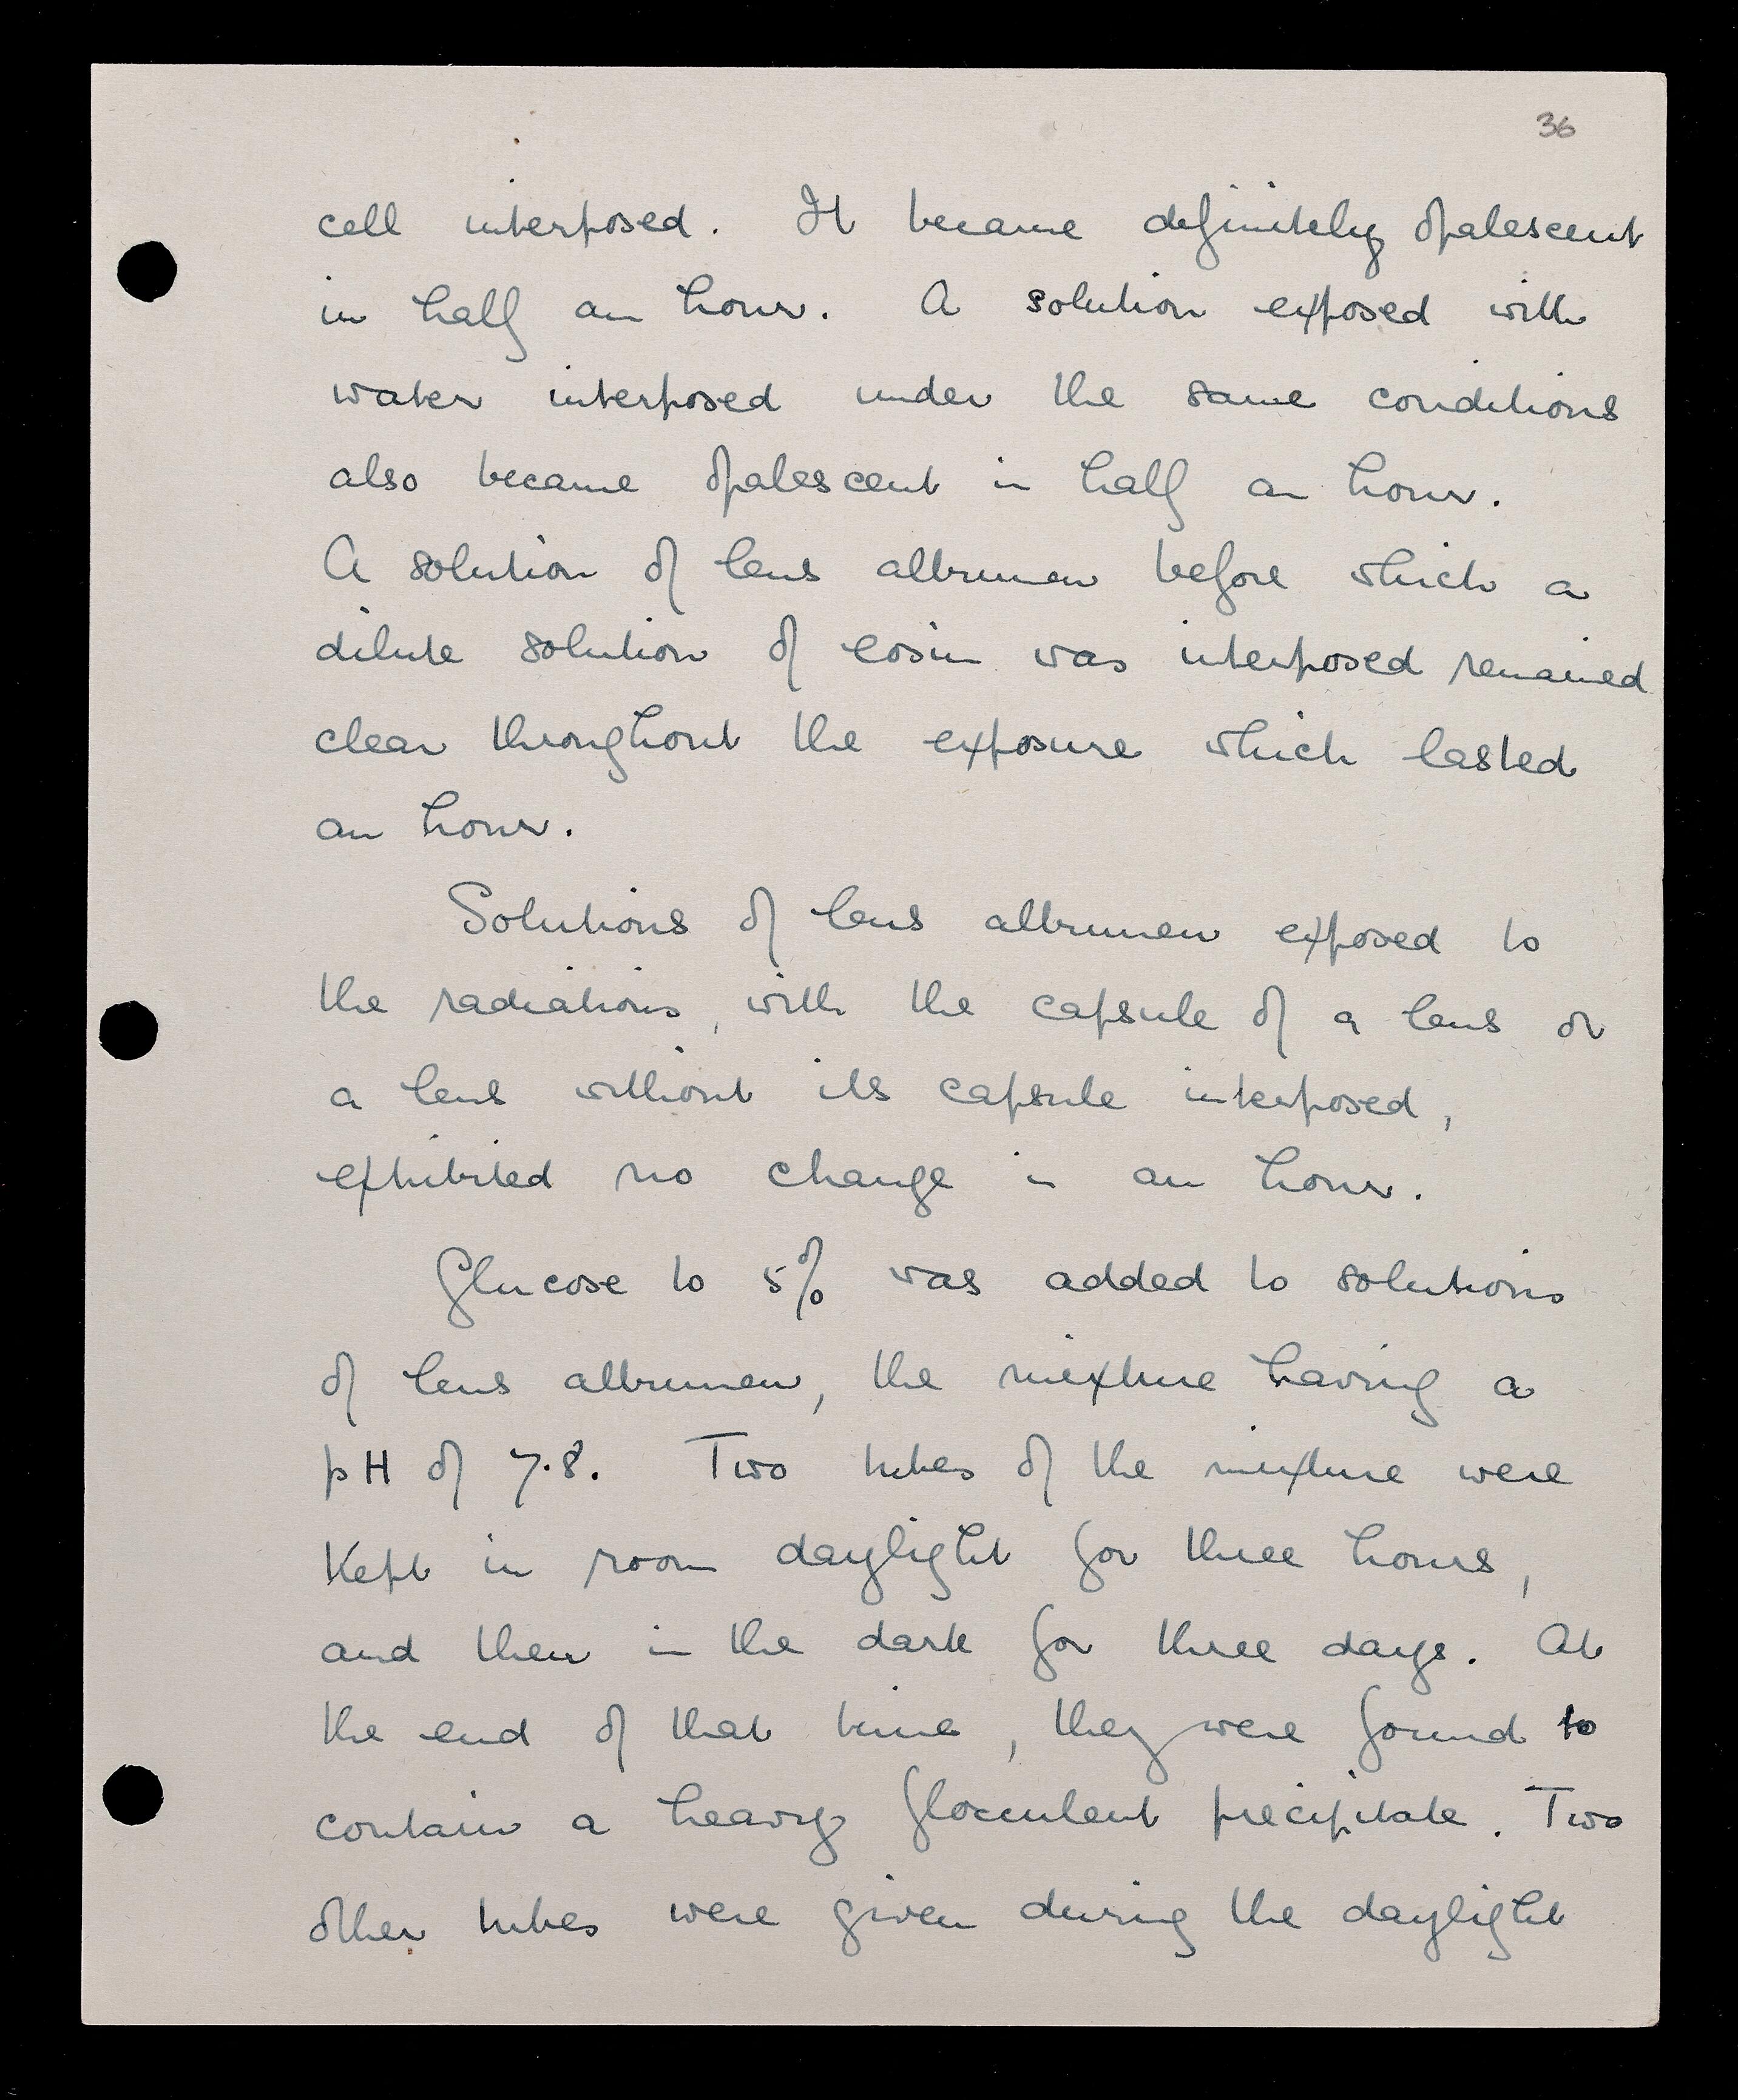 36
cell interposed. It became definitely opalescent
in half an hour. A solution exposed with
water interposed under the same conditions
also became opalescent in half an hour.
A solution of lens albumen before which a
dilute solution of eosin was interposed remained
clear throughout the exposure which lasted
an hour.
Solutions of lens albumen exposed to
the radiations, with the capsule of a lens or
a lens without its capsule interposed,
exhibited no change in an hour.
Glucose to 5% was added to solutions
of lens albumen, the mixture having a
pH of 7.8. Two tubes of the mixture were
kept in room daylight for three hours,
and then in the dark for three days. At
the end of that time, they were found to
contain a heavy flocculent precipitate. Two
other tubes were given during the daylight